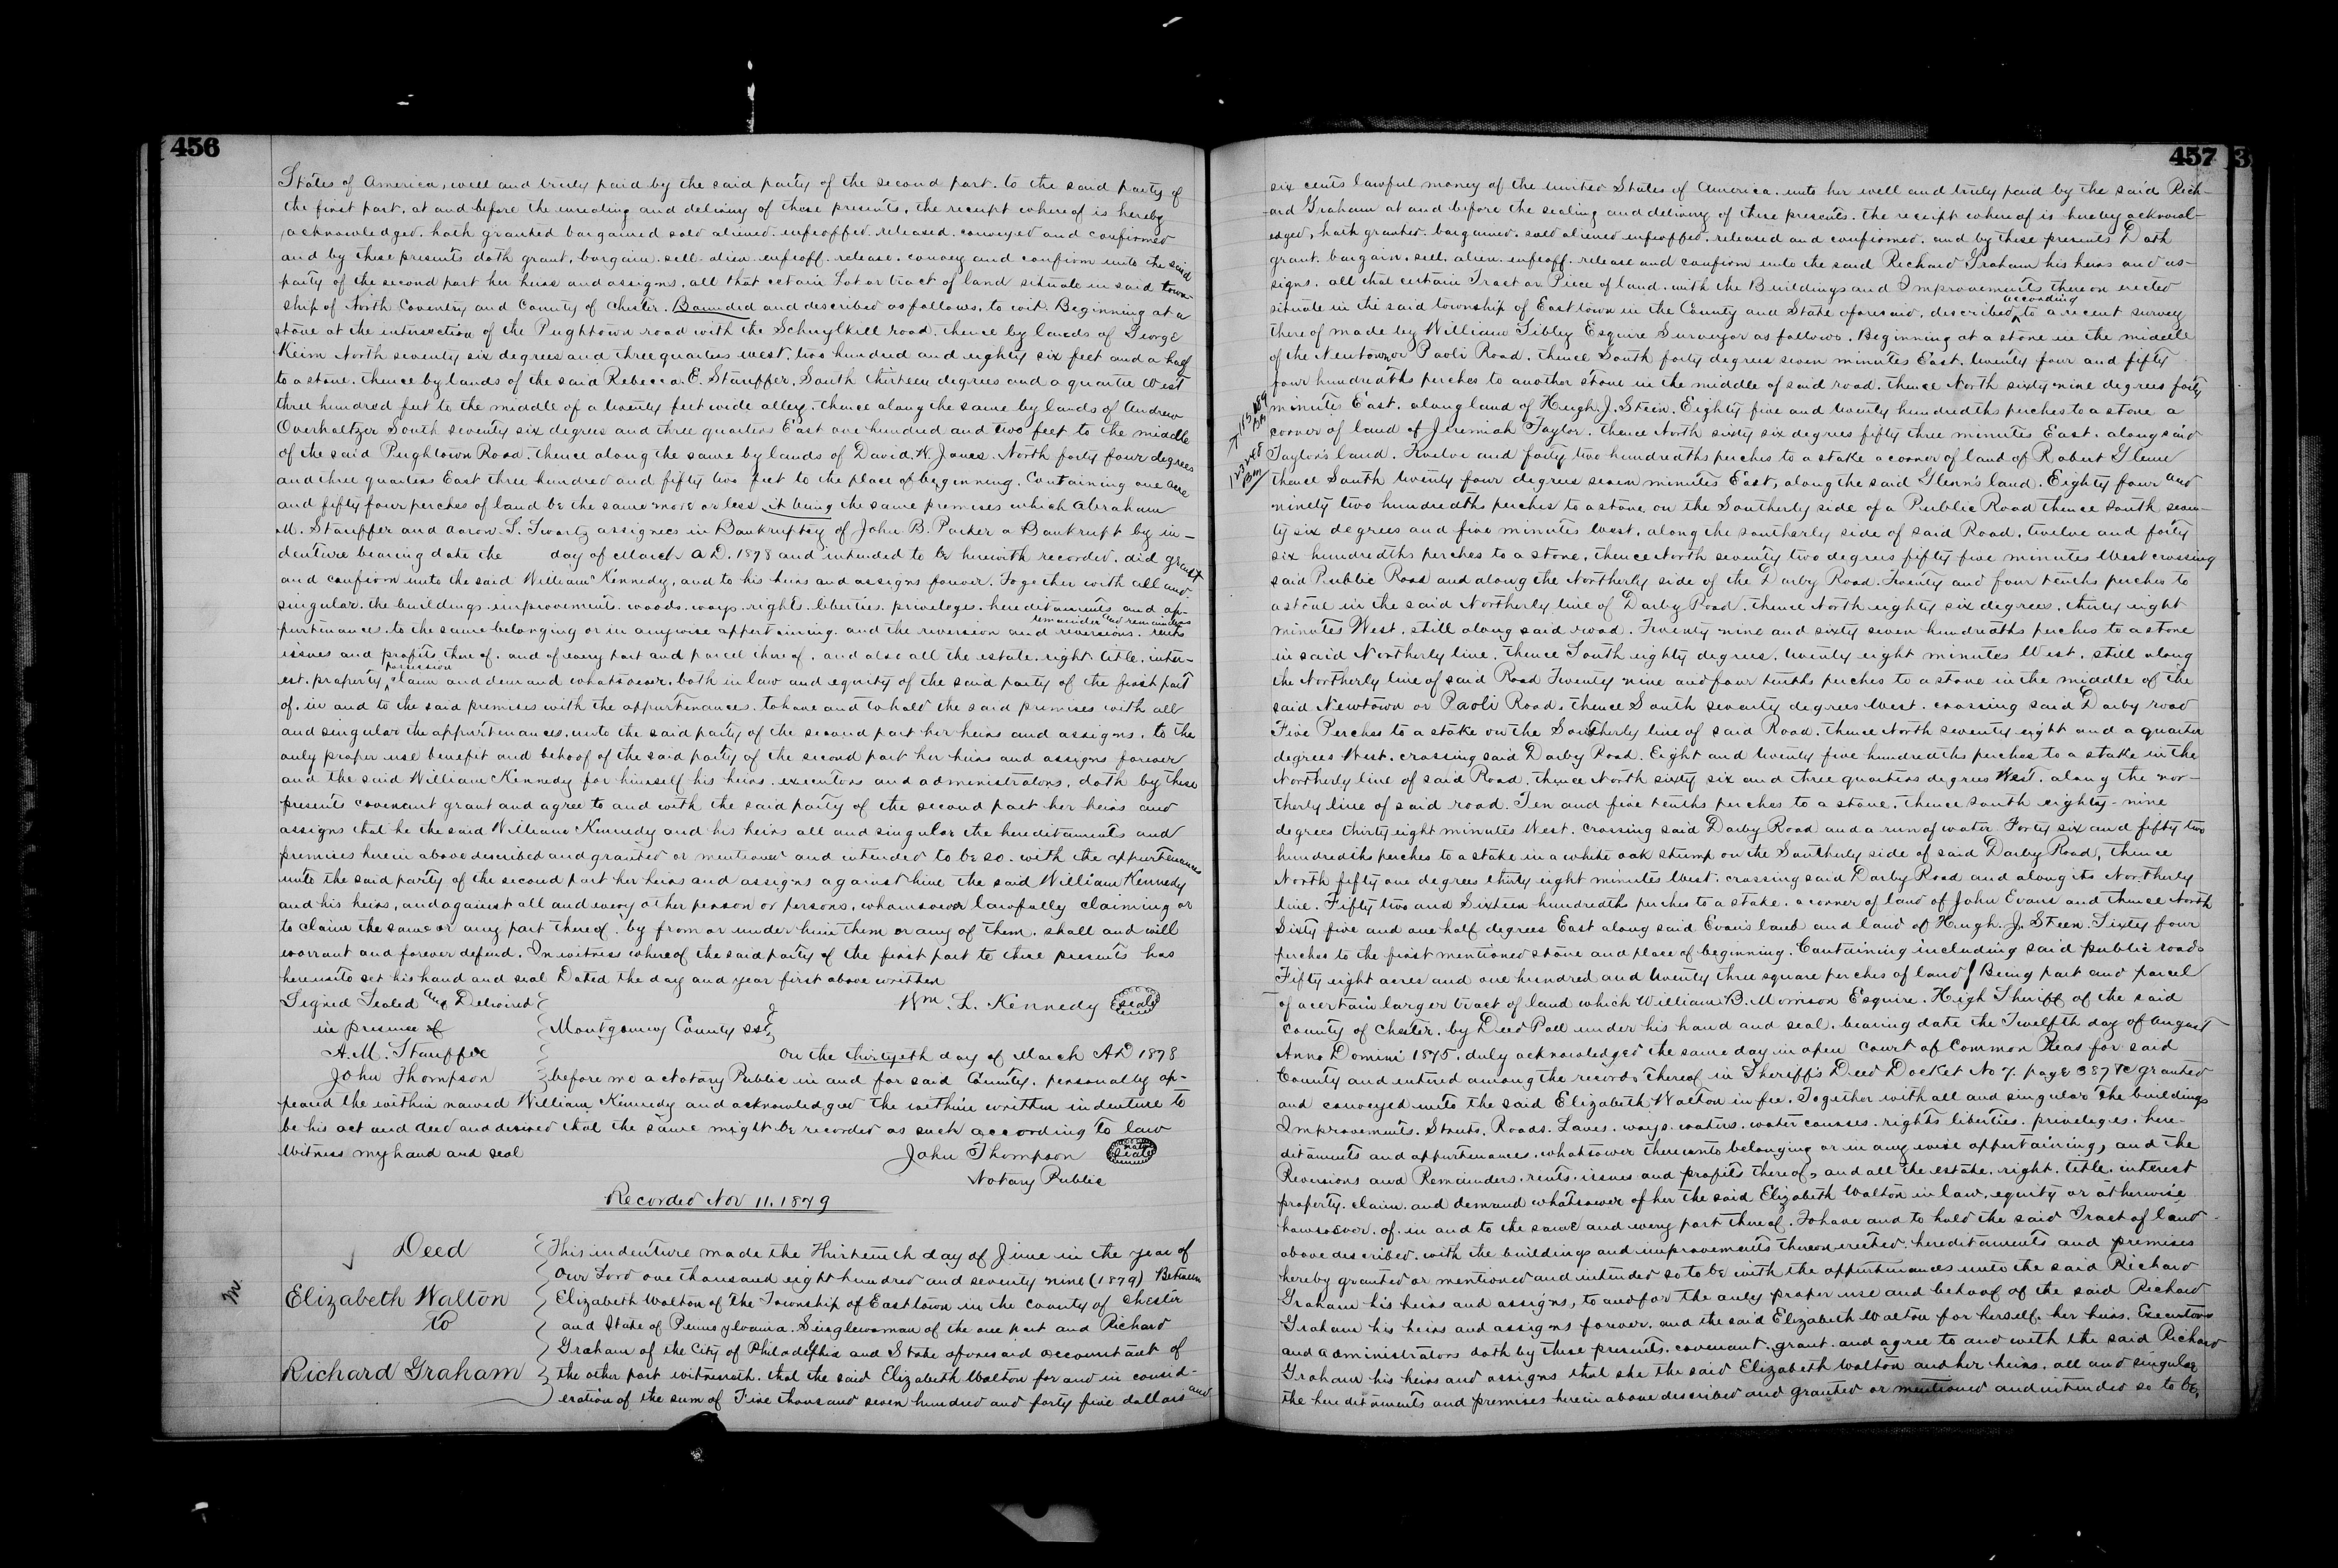 456
States of America, well and truly paid by the said party of the second part, to the said party of
the first part, at and before the ensealing and delivery of these presents, the receipt whereof is hereby
acknowledged, hath granted bargained sold aliened enfeoffed released conveyed and confirmed
and by these presents doth grant, bargain sell alien enfeoff release convey and confirm unto the said
party of the second part her heirs and assigns, all that certain Lot or tract of land situate in said town-
ship of North Coventry and County of Chester. Bounded and described as follows, to wit. Beginning at a
stone at the intersection of the Pughtown road with the Schuylkill road, thence by lands of George
Keim North seventy six degrees and three quarters West, two hundred and eighty six feet and a half
to a stone, thence by lands of the said Rebecca E. Stauffer, South thirteen degrees and a quarter West
three hundred feet to the middle of a twenty feet wide alley, thence along the same by lands of Andrew
Overholtzer South seventy six degrees and three quarters East one hundred and two feet to the middle
of the said Pughtown Road, thence along the same by lands of David W. Jones North forty four degrees
and three quarters East three hundred and fifty two feet to the place of beginning. Containing one acre
and fifty four perches of land be the same more or less, it being the same premises which Abraham
M. Stauffer and Aaron S. Swartz assignees in Bankruptcy of John B. Parker a Bankrupt by in-
denture bearing date the day of March AD. 1878 and intended to be herewith recorded, did grant
and confirm unto the said William Kennedy, and to his heirs and assigns forever. Together with all and
singular the buildings improvements woods ways rights liberties privileges hereditaments and ap-
purtenances to the same belonging or in anywise appertaining and the reversion and reversions remainder and remainders rents
issues and profits thereof, and of every part and parcel thereof, and also all the estate, right title, inter-
est, property, possession claim and demand whatsoever, both in law and equity of the said party of the first part
of, in and to the said premises with the appurtenances, to have and to hold the said premises with all
and singular the appurtenances, unto the said party of the second part her heirs and assigns, to the
only proper use benefit and behoof of the said party of the second part her heirs and assigns forever
and the said William Kennedy for himself his heirs, executors and administrators, doth by these
presents covenant grant and agree to and with the said party of the second part her heirs and
assigns that he the said William Kennedy and his heirs all and singular the hereditaments and
premises herein above described and granted or mentioned and intended to be so, with the appurtenances
unto the said party of the second part her heirs and assigns against him the said William Kennedy
and his heirs, and against all and every other person or persons, whomsoever lawfully claiming or
to claim the same or any part thereof, by from or under him them or any of them, shall and will
warrant and forever defend. In witness whereof the said party of the first part to these presents has
hereunto set his hand and seal Dated the day and year first above written
Signed Sealed and Delivered
in presence of
A. M. Stauffer
John Thompson
Wm. L. Kennedy seal
Montgomery County sst
On the thirtyeth day of March AD 1878
before me a Notary Public in and for said County, personally ap-
peared the within named William Kennedy and acknowledged the within written indenture to
be his act and deed and desired that the same might be recorded as such according to law
Witness my hand and seal
John Thompson seal
Notary Public
Recorded Nov 11. 1879
Deed
Elizabeth Walton
To
Richard Graham
This indenture made the Thirteenth day of June in the year of
Our Lord one thousand eight hundred and seventy nine (1879) Between
Elizabeth Walton of the Township of Easttown in the County of Chester
and State of Pennsylvania. Singlewoman of the one part and Richard
Graham of the City of Philadelphia and State aforesaid accountant of
the other part witnesseth, that the said Elizabeth Walton for and in consid-
eration of the sum of Five thousand seven hundred and forty five dollars and
457
six cents lawful money of the United States of America, unto her well and truly paid by the said Rich-
ard Graham at and before the sealing and delivery of these presents, the receipt whereof is hereby acknowl-
edged, hath granted, bargained, sold aliened enfeoffed, released and confirmed, and by these presents Doth
grant, bargain, sell, alien, enfeoff, release and confirm unto the said Richard Graham his heirs and as-
signs, all that certain Tract or Piece of land, with the Buildings and Improvements thereon erected
situate in the said township of Easttown in the County and State aforesaid, described according to a recent survey
thereof made by William Sibley Esquire Surveyor as follows. Beginning at a stone in the middle
of the Newtown or Paoli Road, thence South forty degrees seven minutes East, twenty four and fifty
four hundredths perches to another stone in the middle of said road, thence North sixty nine degrees forty
minutes East, along land of Hugh J. Steen, Eighty five and twenty hundredths perches to a stone a
corner of land of Jeremiah Taylor, thence North sixty six degrees fifty three minutes East, along said
Taylor's land, Twelve and forty two hundredths perches to a stake a corner of land of Robert Glenn
thence South twenty four degrees seven minutes East, along the said Glenn's land, Eighty four and
ninety two hundredths perches to a stone on the Southerly side of a Public Road thence South seven-
ty six degrees and five minutes West, along the southerly side of said Road, twelve and forty
six hundredths perches to a stone, thence North seventy two degrees fifty five minutes West crossing
said Public Road and along the Northerly side of the Darby Road, Twenty and four tenths perches to
a stone in the said Northerly line of Darby Road, thence North eighty six degrees, thirty eight
minutes West, still along said road, Twenty nine and sixty seven hundredths perches to a stone
in said Northerly line, thence South eighty degrees, twenty eight minutes West, still along
the Northerly line of said Road Twenty nine and four tenths perches to a stone in the middle of the
said Newtown or Paoli Road, thence South seventy degrees West, crossing said Darby road
Five Perches to a stake on the Southerly line of said Road, thence North seventy eight and a quarter
degrees West, crossing said Darby Road, Eight and twenty five hundredths perches to a stake in the
Northerly line of said Road, thence North sixty six and three quarters degrees West, along the nor-
therly line of said road, Ten and five tenths perches to a stone, thence south eighty-nine
degrees thirty eight minutes West, crossing said Darby Road and a run of water Forty six and fifty two
hundredths perches to a stake in a white oak stump on the Southerly side of said Darby Road, thence
North fifty one degrees thirty eight minutes West, crossing said Darby Road and along its Northerly
line, Fifty two and Sixteen hundredths perches to a stake, a corner of land of John Evans and thence North
Sixty five and one half degrees East along said Evan's land and land of Hugh J. Steen Sixty four
perches to the first mentioned stone and place of beginning. Containing including said public roads
Fifty eight acres and one hundred and twenty three square perches of land Being part and parcel
of a certain larger tract of land which William B. Morrison Esquire, High Sheriff of the said
County of Chester, by Deed Poll under his hand and seal, bearing date the Twelfth day of August
Anno Domini 1875, duly acknowledged the same day in open Court of Common Pleas for said
County and entered among the records thereof in Sheriff's Deed Docket No 7. page 387 &c granted
and conveyed unto the said Elizabeth Walton in fee. Together with all and singular the buildings
Improvements, Streets, Roads, Lanes, ways, waters, water courses, rights liberties, privileges, here-
ditaments and appurtenances, whatsoever thereunto belonging or in any wise appertaining, and the
Reversions and Remainders, rents, issues and profits thereof, and all the estate, right, title, interest
property, claim, and demand whatsoever of her the said Elizabeth Walton in law, equity or otherwise
howsoever, of, in and to the same and every part thereof. To have and to hold the said Tract of land
above described, with the buildings and improvements thereon erected, hereditaments and premises
hereby granted or mentioned and intended so to be with the appurtenances unto the said Richard
Graham his heirs and assigns, to and for the only proper use and behoof of the said Richard
Graham his heirs and assigns forever, and the said Elizabeth Walton for herself, her heirs, Executors
and administrators doth by these presents, covenant, grant, and agree to and with the said Richard
Graham his heirs and assigns that she the said Elizabeth Walton and her heirs, all and singular
the hereditaments and premises herein above described and granted or mentioned and intended so to be,